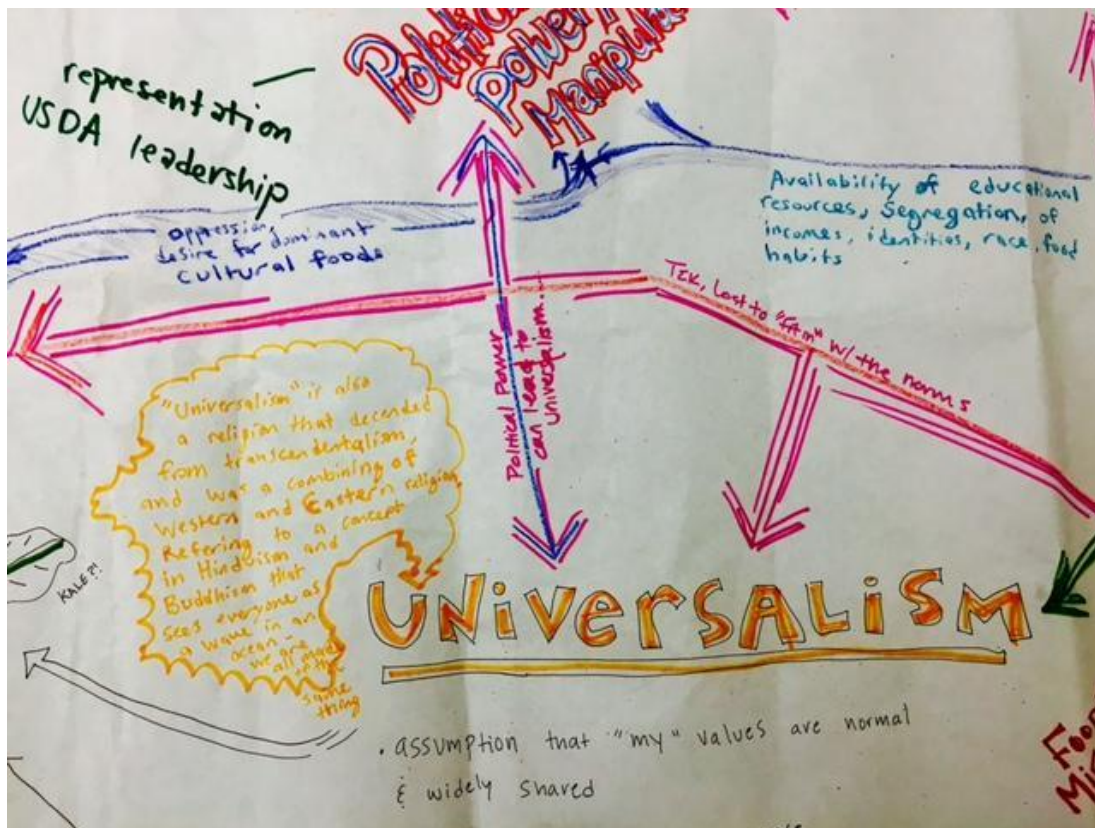 representation
USDA leadership
Power
oppression,
desire for dominant
cultural foods
Availability of educational
resources, Segregation, of
incomes, identities, race, food
habits
TEK, Lost to w/ the norms
Political Power
can lead to
universalism...
"Universalism" is also
a religion that decended
from transcendentalism,
and was a combining of
Western and Eastern religion.
Refering to a concept
in Hinduism and
Buddhism that
sees everyone as
a wave in an
ocean -
we are
all made
of the
same
thing
KALE?!
UNiverSALiSM
• assumption that "my" values are normal
& widely shared